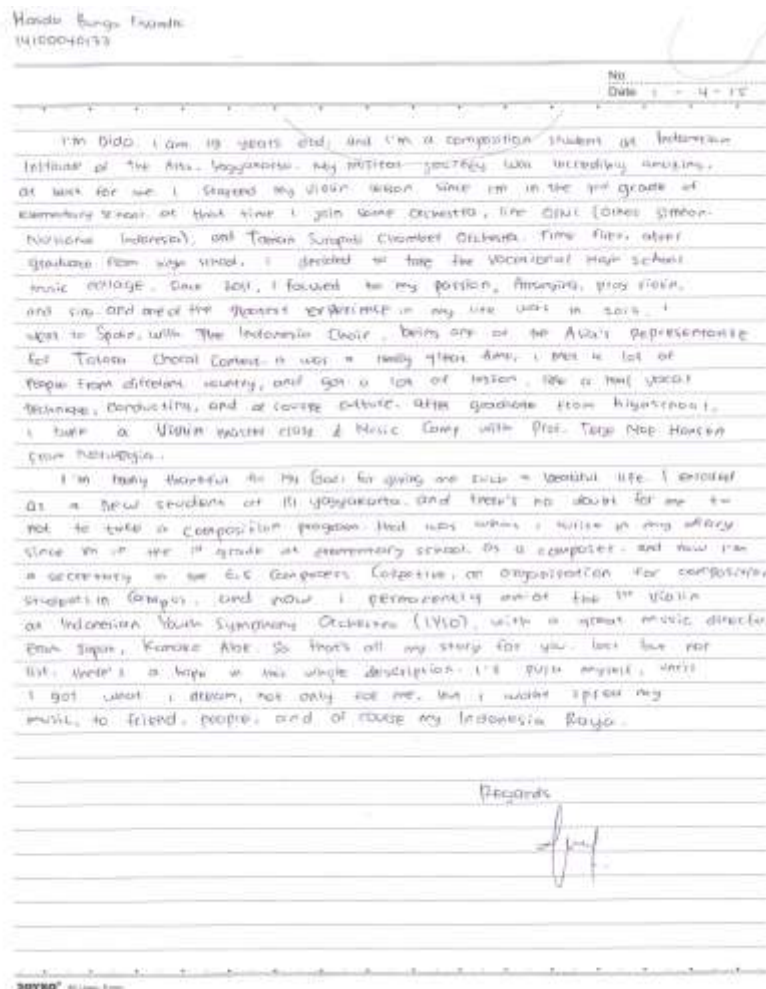 Bunga
No
Date 1 - 4 - 15
I'm Dido. I am 19 years old, and I'm a composition student at Indonesian
Institute of the Arts. Yogyakarta. My musical journey was incredibly amazing,
at least for me. I started my violin lesson since I'm in the 3rd grade of
elementary school. at that time I join some orchestra, like
Indonesia), and Taman Suropati Chamber Orchestra. Time flies, after
graduate from high school, I decided to take the Vocational High School
music collage. Since 2011, I focused to my passion, Arranging, play violin,
and sing. and one of the greatest experience in my life was in 2014. I
went to Spain, with The Indonesia Choir, being one of the Asia's Representative
for Tolosa Choral Contest. It was a really great time, I met a lot of
people from different country, and got a lot of lesson, like a vocal
technique, conducting, and of course culture. after graduate from highschool,
I take a Violin master class & Music Camp with Prof.
from
I'm really thankful to my God, for giving me such a beautiful life. I enrolled
as a new student at ISI Yogyakarta. and there's no doubt for me to
not to take a composition program that was what I write in my diary
since I'm in the 1st grade at elementary school. as a composer. and now I'm
a secretary in the Composers Collective, an organisation for composition
student in Campus, and now I permanently of the 1st violin
at Indonesian Youth Symphony Orchestra (IYSO), with a great music director
from Japan, Kanako Abe. So that's all my story for you. last but not
list. there's a hope in this whole description. I'll push myself, until
I got what I dream, not only for me, but I spread my
music, to friend, people, and of course my Indonesia Raya.
Regards